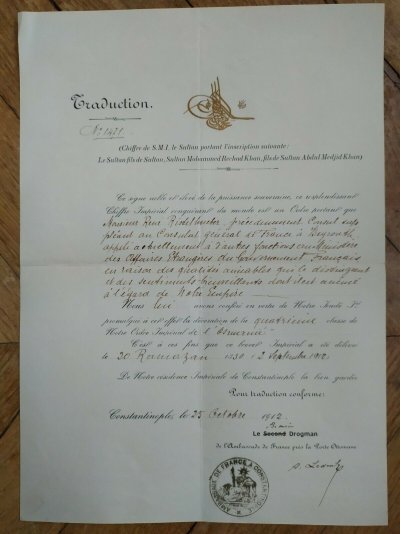 Traduction.
No 1471
(Chiffre de S.M.I. le Sultan portant l'inscription suivante:
Le Sultan fils de Sultan, Sultan Mohammed Rechad Khan, fils de Sultan Abdul Medjid Khan)
Ce signe noble et élevé de la puissance souveraine, ce resplendissant
Chiffre Impérial conquérant du monde est un Ordre portant que
Monsieur René Ristelhueber précédemment Consul sup
pléant au Consulat général de France à Beyrouth,
appelé actuellement à d'autres fonctions au Ministère
des Affaires Etrangères du Gouvernement français
en raison des qualités aimables qui le distinguent
et des sentiments bienveillants dont il est animé
à l'égard de Notre Empire
Nous lui avons conféré en vertu de Notre Iradé Il
promulgué à cet effet la décoration de la quatrième classe de
Notre Ordre Impérial de l'Osmanié
C'est à ces fins que ce brevet Impérial a été délivré
le 20 Ramazan 1330 / 2 Septembre 1912
De Notre résidence Impériale de Constantinople la bien gardée
Pour traduction conforme:
Constantinople, le 25 Octobre 1912
Le Second Drogman
de l'Ambassade de France près la Porte Ottomane
AMBASSADE DE FRANCE A CONSTANTINOPLE